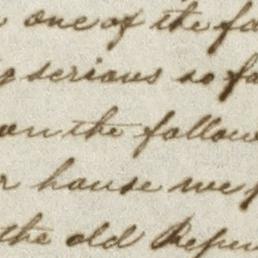 one of the fa
g serious so fa
on the follow
r house we p
the old Repu